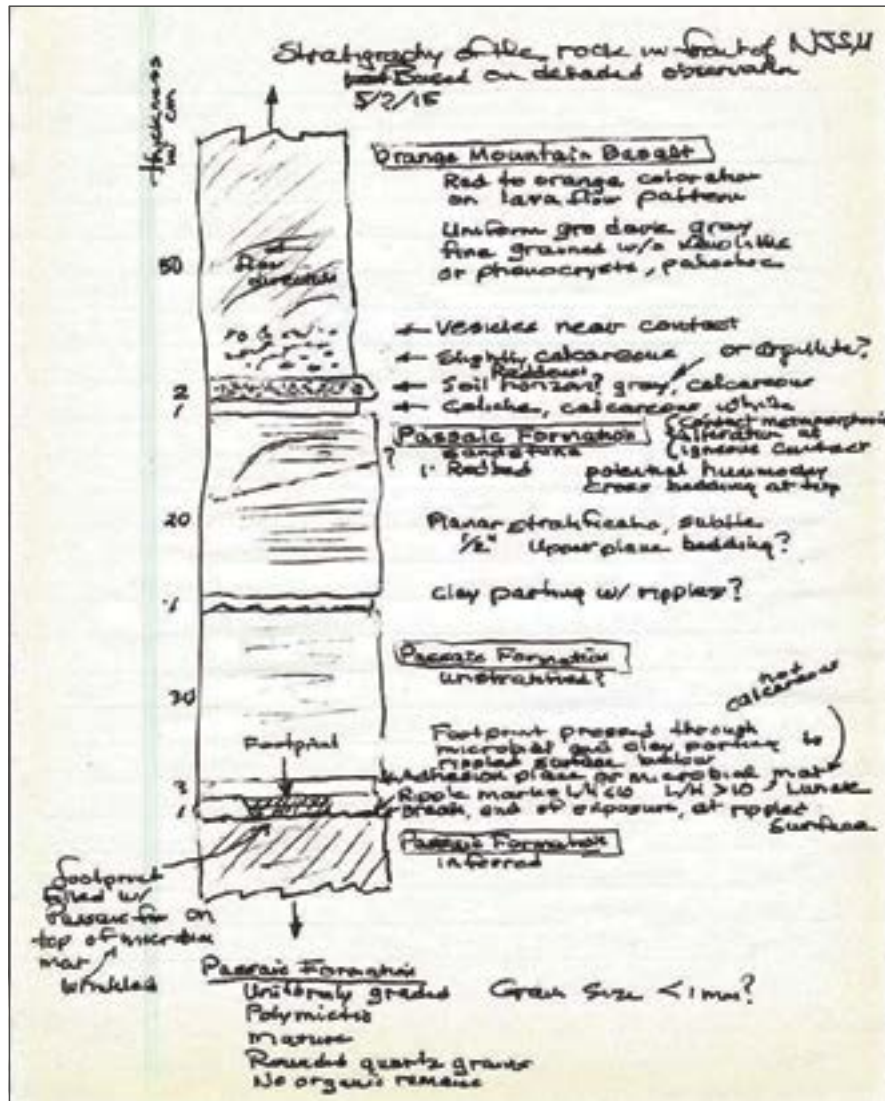 Stratigraphy of the rock in front of NJSM
Based on detailed observation
5/2/15
thickness
in cm
Orange Mountain Basalt
Red to orange coloration
on lava flow pattern
Uniform gro dark gray
fine grained w/o xenoliths
or phenocrysts, pahoehoe
50
flow
direction
← Vesicles near contact
← Slightly calcareous or argillite?
Reddened
2 ← Soil horizon? gray, calcareous
1 ← Caliche, calcareous white
Passaic Formation
Sandstone
1. Redbed
(Contact metamorphic
alteration at
igneous contact
?
potential hummocky
cross bedding at top
20
Planar stratification, subtle
1/2" Upper plane bedding?
1
Clay parting w/ ripples?
Passaic Formation
Unstratified?
30
not
calcareous
Footprint
Footprint pressed through
microbial and clay parting to
rippled surface below
3 Adhesion plane or microbial mat
Ripple marks L/H <10 L/H >10 Lunate
1 Break, end of exposure, at rippled
surface
Passaic Formation
inferred
footprint
filled w/
Passaic fm on
top of microbial
mat
wrinkled
Passaic Formation
Uniformly graded Grain size <1mm?
Polymictic
Mature
Rounded quartz grains
No organic remains